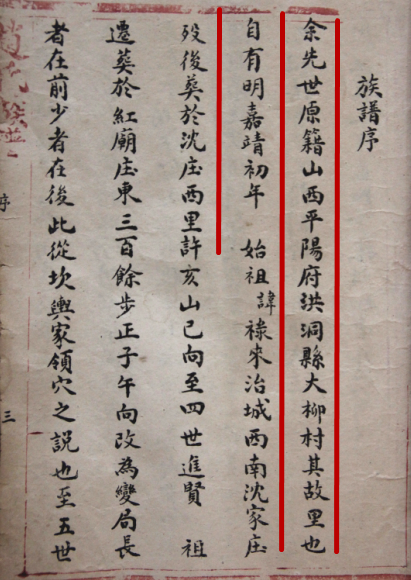 族譜序
余先世原籍山西平陽府洪洞縣大柳村其故里也
自有明嘉靖初年 始祖諱祿來治城西南沈家庄
歿後葬於沈庄西里許亥山巳向至四世進賢 祖
遷葬於紅廟庄東三百餘步正子午向改為變局長
者在前少者在後此從坎輿家領穴之說也至五世
序
三